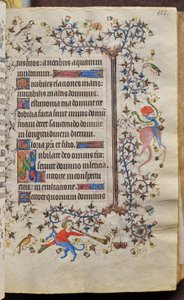 suos: a vocibus aquarum
multarum.
Mirabiles elaciones maris:
mirabilis in altis dominus.
Testimonia tua domine cre
dibilia facta sunt nimis: domu
tuam decet sanctitudo domine
in longitudinem dierum.
Gloria pri et filio.
Iubilate deo omnis terra:
servite domino in leticia.
Introite in conspectu
eius: in exultatione.
Scitote quoniam dominus